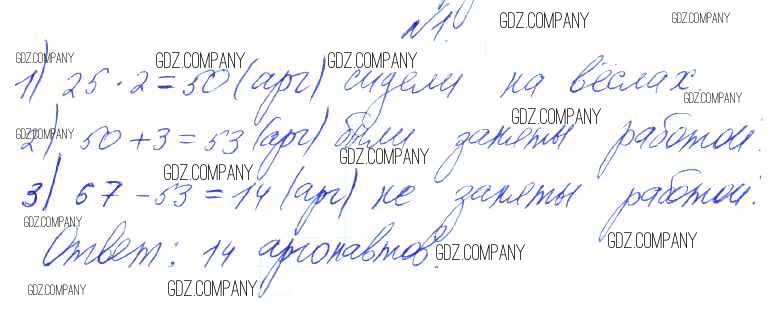 №1. GDZ.COMPANY GDZ.COMPANY
GDZ.COMPANY GDZ.COMPANY GDZ.COMPANY
1) 25 · 2 = 50 (арг) сидели на вёслах.
GDZ.COMPANY GDZ.COMPANY
2) 50 + 3 = 53 (арг) были заняты работой.
GDZ.COMPANY GDZ.COMPANY GDZ.COMPANY
3) 67 - 53 = 14 (арг) не заняты работой.
GDZ.COMPANY
Ответ: 14 аргонавтов.
GDZ.COMPANY GDZ.COMPANY
GDZ.COMPANY GDZ.COMPANY